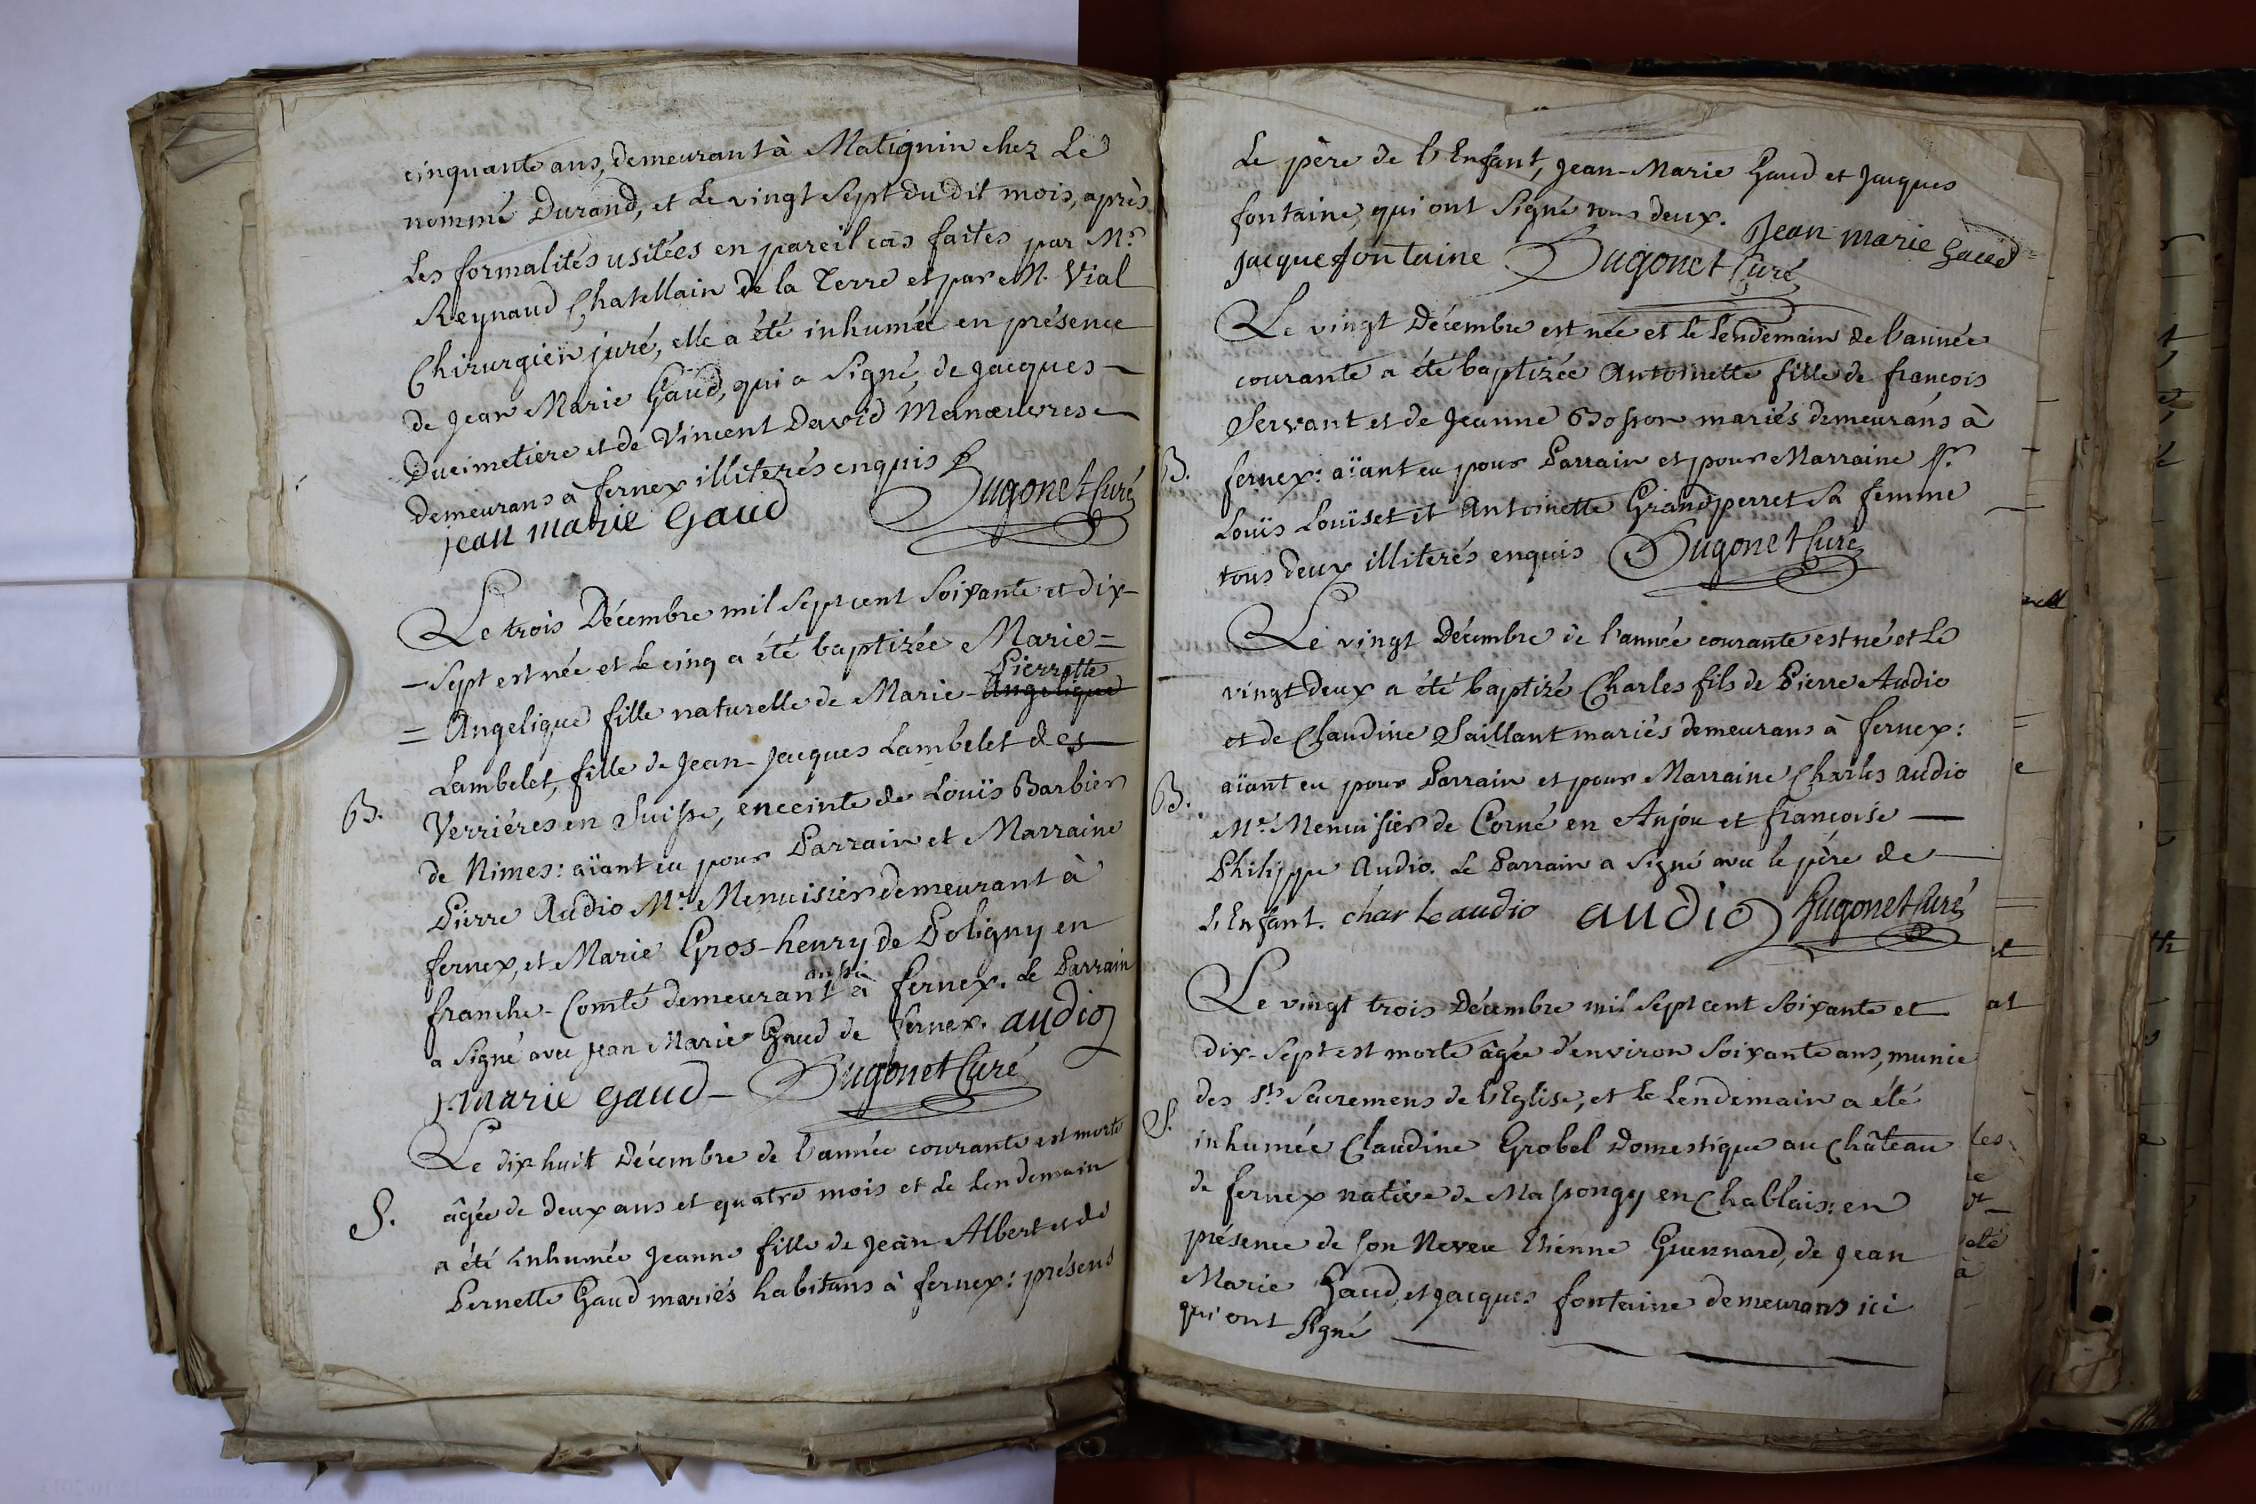 cinquante ans, demeurant à Matignin chez Le
nommé Durand, et le vingt sept du dit mois, après
les formalités usitées en pareil cas faites par Mr.
Reynaud Chatellain de la Terre et par M. Vial
Chirurgien juré, elle a été inhumée en présence
de Jean Marie Gaud, qui a signé, de Jacques
Ducimetiere et de Vincent David Manœuvres
demeurans à fernex illiterés enquis Hugonet Curé
jean marie Gaud
Le trois Décembre mil sept cent soixante et dix-
-sept est née et le cinq a été baptizée Marie=
Pierrette
= Angelique fille naturelle de Marie-Angelique
Lambelet, fille de Jean-Jacques Lambelet des
B.
Verriéres en Suisse, enceinte de Louïs Barbier
de Nimes: aïant eu pour Parrain et Marraine
Pierre Audio Mr. Menuisier demeurant à
fernex, et Marie Gros-henry de Poligny en
aussi
franche-Comté demeurant à fernex. Le Parrain
a signé avec jean Marie Gaud de fernex. audio
j marie gaud - Hugonet Curé
Le dix huit Décembre de l'année courante est morte
S. âgée de deux ans et quatre mois et le lendemain
a été inhumée Jeanne fille de Jean Albert et de
Pernette Gaud mariés habitans à fernex: présens
Le père de l'Enfant, Jean-Marie Gaud et Jacques
fontaine, qui ont signé tous deux. Jean marie Gaud
jacque fontaine Hugonet Curé
Le vingt Décembre est née et le lendemain de l'année
courante a été baptizée Antoinette fille de françois
Servant et de Jeanne Bosson mariés demeurans à
B. fernex: aïant eu pour Parrain et pour Marraine Sr.
Louïs Louïset et Antoinette Grandperret sa femme
tous deux illiterés enquis Hugonet Curé
Le vingt Décembre de l'année courante est né et le
vingt deux a été baptizé Charles fils de Pierre Audio
et de Claudine Saillant mariés demeurans à fernex:
B. aïant eu pour Parrain et pour Marraine Charles audio
Mr. Menuisier de Corné en Anjou et françoise
Philippe Audio. Le Parrain a signé avec le père de
l'Enfant. charle audio audio Hugonet Curé
Le vingt trois Décembre mil sept cent soixante et
dix-sept est morte âgée d'environ soixante ans, munie
des Sts. Sacremens de l'Eglise, et le lendemain a été
S. inhumée Claudine Grobel Domestique au Château
de fernex native de Massongy en Chablais: en
présence de son Neveu Etienne Guennard, de Jean
Marie Gaud, et Jacques fontaine demeurans ici
qui ont signé